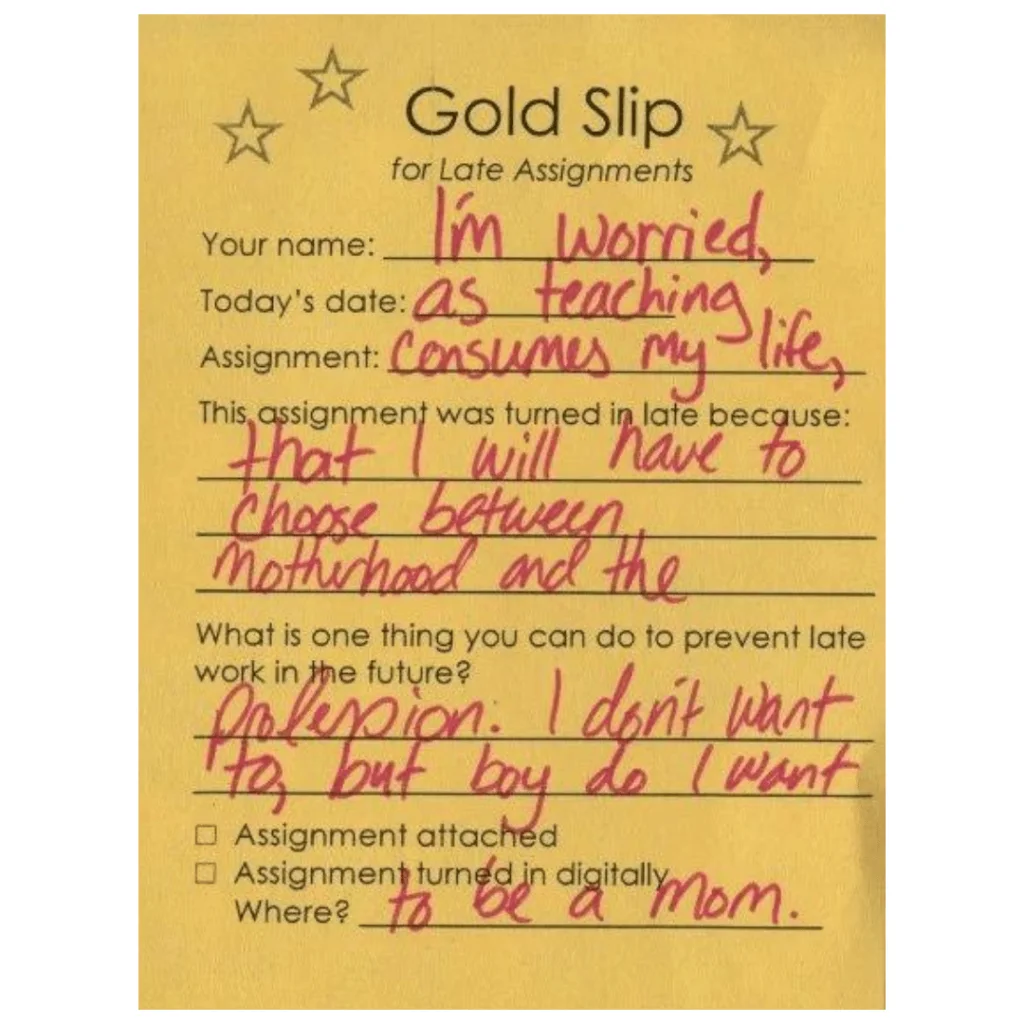 Gold Slip
for Late Assignments
Your name: I'm worried,
Today's date: as teaching
Assignment: consumes my life,
This assignment was turned in late because:
that I will have to
choose between
motherhood and the
What is one thing you can do to prevent late
work in the future?
profession. I don't want
to, but boy do I want
☐ Assignment attached
☐ Assignment turned in digitally
Where? to be a mom.